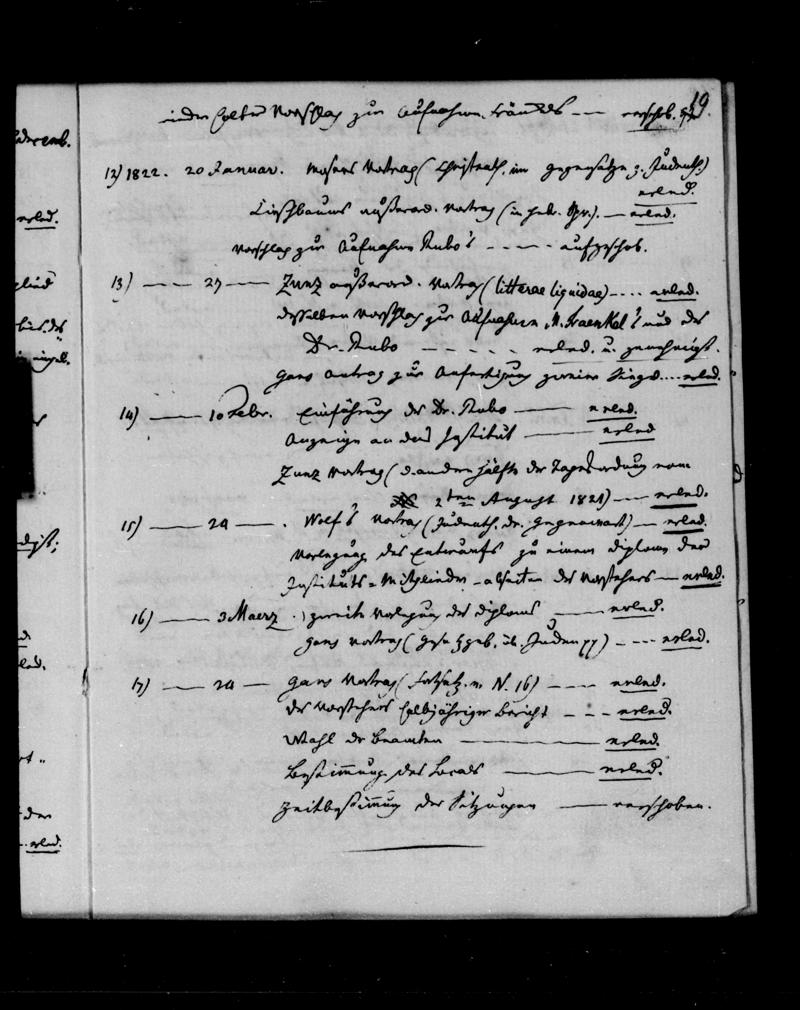 19
Vorschlag zur Aufnahme Fränkels — verschob.
12) 1822. 20 Januar. Mosers Vortrag (Christenth. im Gegensatze z. Judenth.)
erled.
Kirschbaums außerord. Vortrag (in hebr. Spr.). — erled.
Vorschlag zur Aufnahme Rubo's - - - - aufgeschob.
13) —— 27 —— Zunz außerord. Vortrag (litterae liquidae) .... erled.
desselben Vorschlag zur Aufnahme M. Fraenkel's und des
Dr. Rubo - - - - - erled. u. genehmigt.
Gans Antrag zur Anfertigung zweier Siegel .... erled.
14) —— 10 Febr. Einführung des Dr. Rubo —— erled.
Anzeige an das Institut —— erled
Zunz Vortrag (d. andern Hälfte der Tagesordnung vom
2ten August 1821) —— erled.
15) —— 24 —. Wolf's Vortrag (Judenth. der Gegenwart) — erled.
Vorlegung des Entwurfs zu einem Diplom der
Instituts-Mitglieder - abseiten des Vorstehers — erled.
16) —— 3 Maerz .) zweite Vorlegung des Diploms —— erled.
Gans Vortrag (Gesetzgeb. üb. Juden pp) - - - - erled.
17) —— 24 — Gans Vortrag (Fortsetz. v. N. 16) - - - - erled.
des Vorstehers halbjähriger Bericht - - - erled.
Wahl der Beamten —— erled.
Bestimmung des Locals —— erled.
Zeitbestimmung der Sitzungen —— verschoben.
erled.
erled.